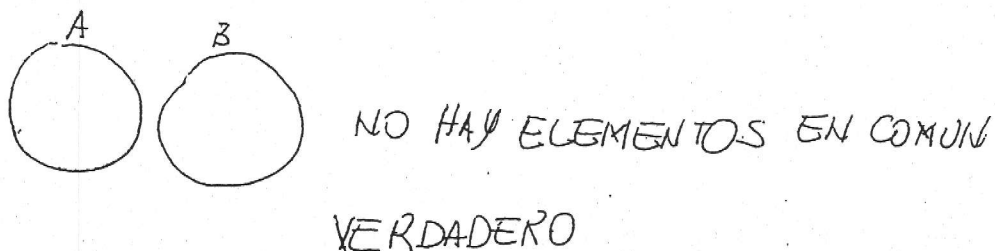 A B
NO HAY ELEMENTOS EN COMUN
VERDADERO